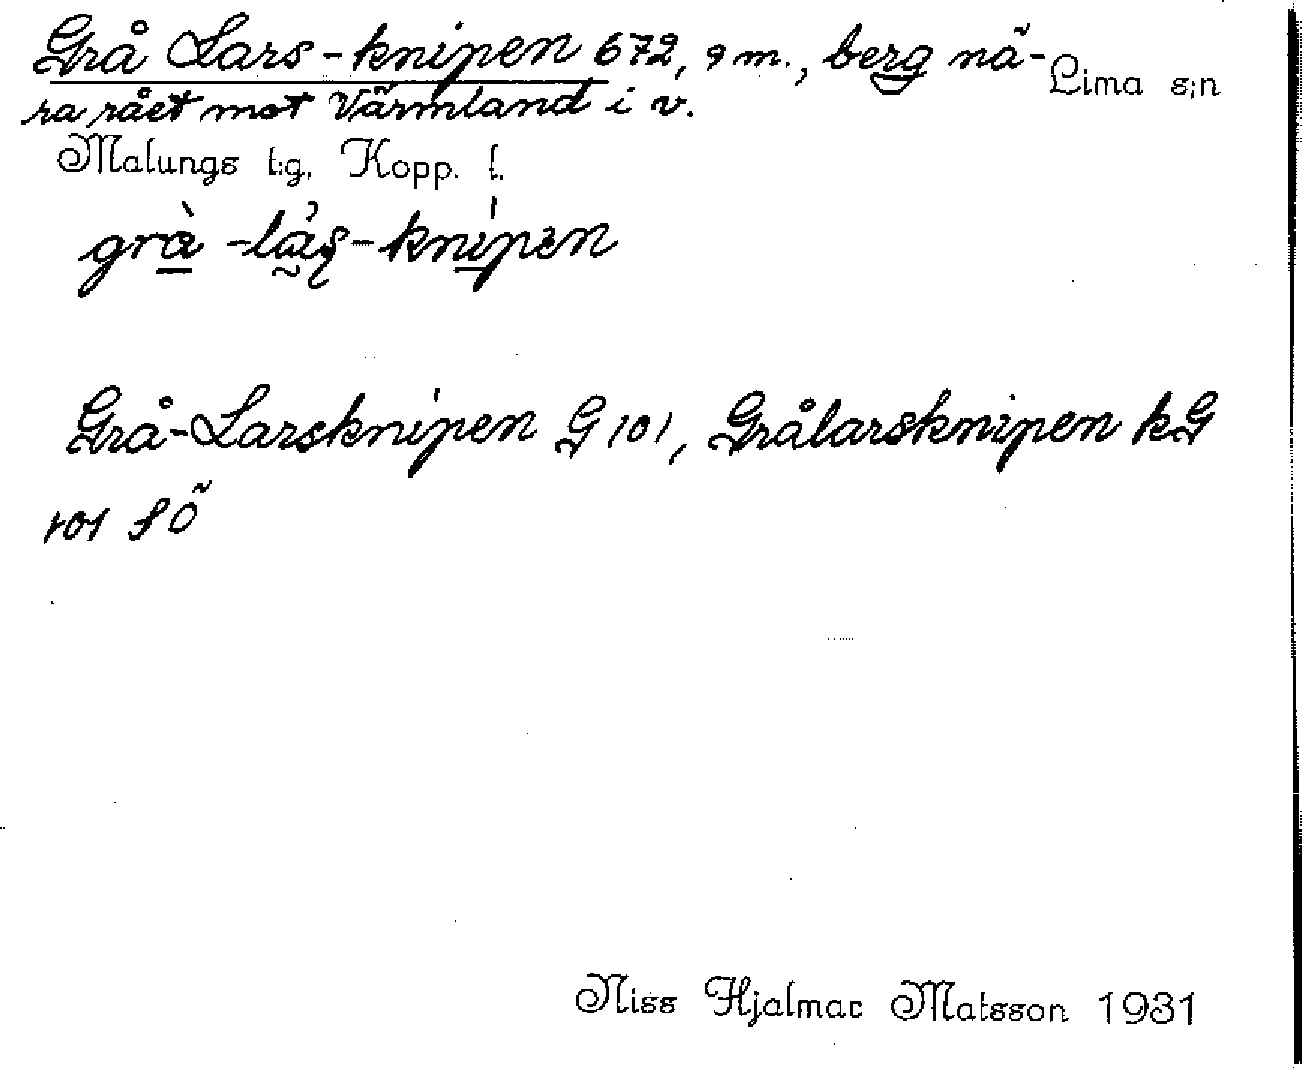 Grå Lars-knipen 672,9 m., berg nä- Lima s:n
ra rået mot Värmland i v.
Malungs t:g, Kopp. l.
grà-làș-knìpen
Grå-Larsknipen G 101, Grålarsknipen kG
101 SÖ
Niss Hjalmar Matsson 1931